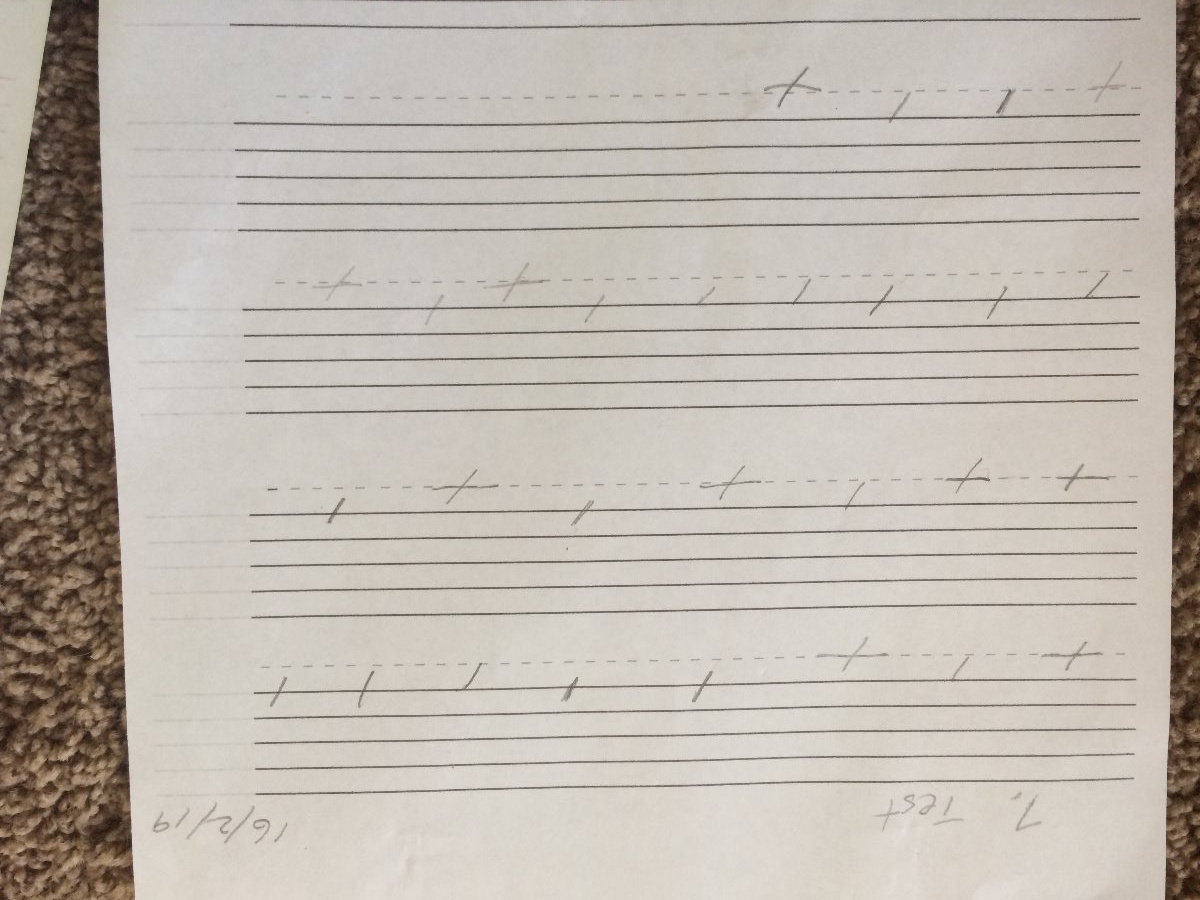 1. Test 16/2/19